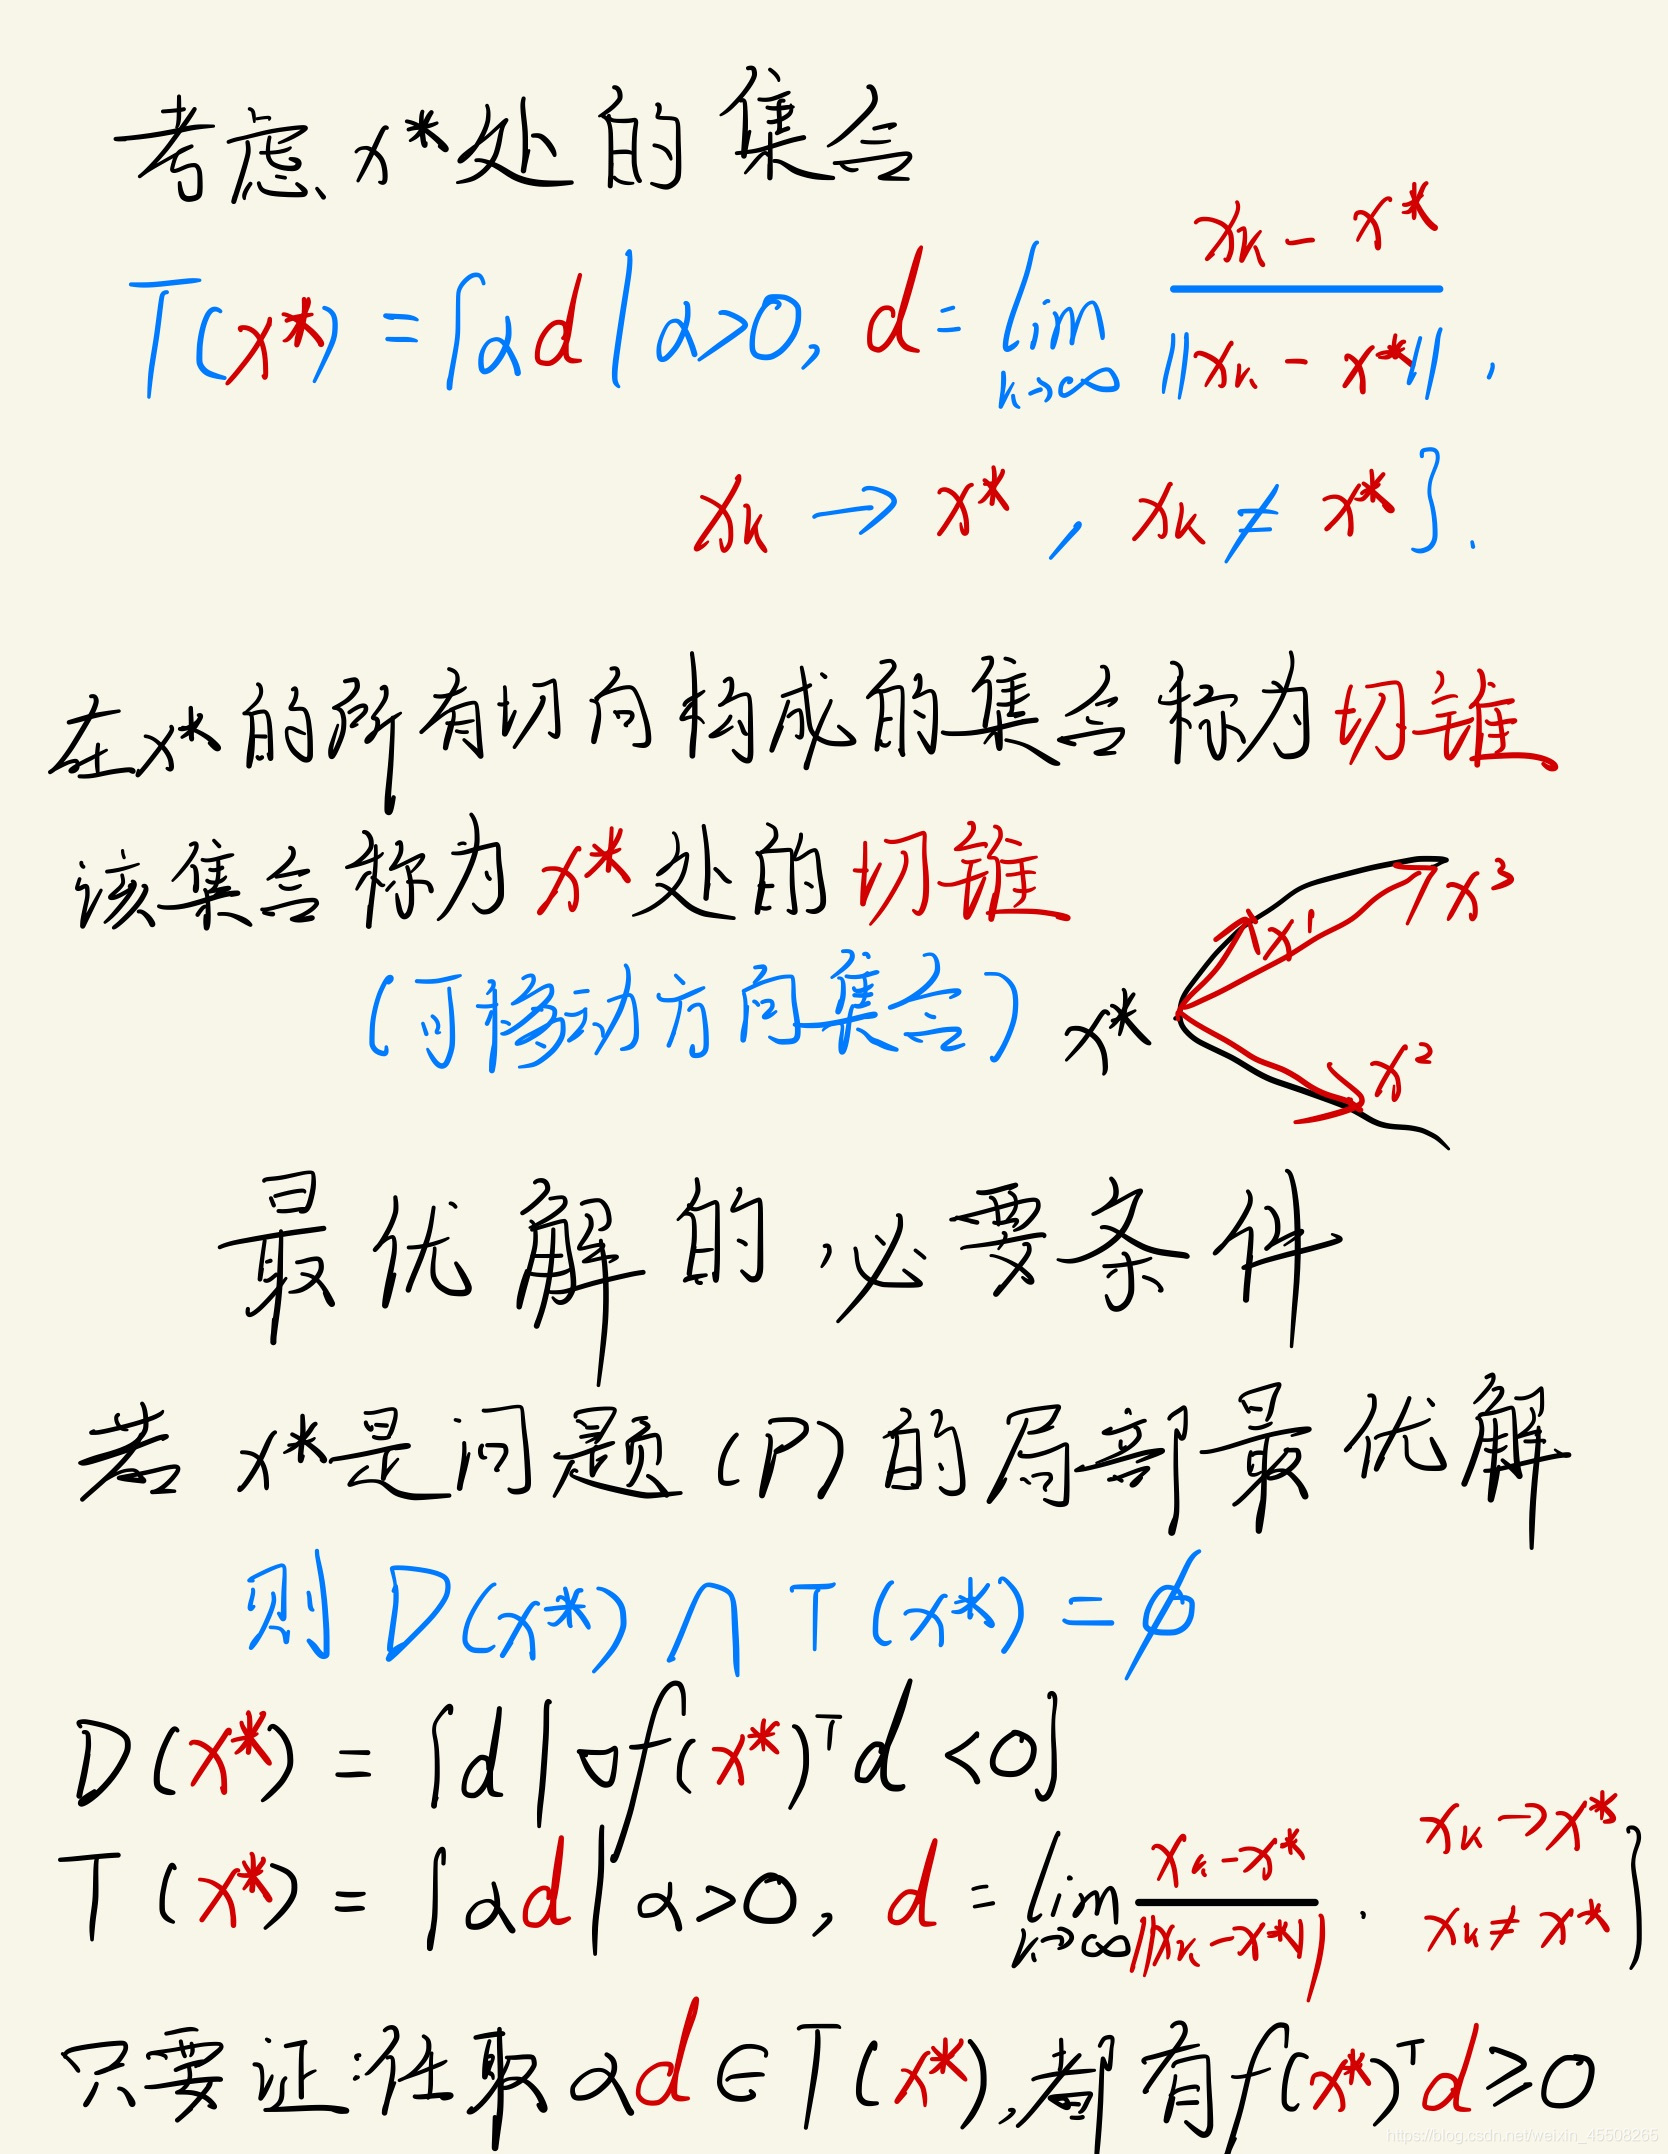 考虑 x*处的集合
T(x*) = {αd | α>0, d = lim_{k→∞} (x_k - x*)/‖x_k - x*‖ ,
x_k → x* , x_k ≠ x* }.
在x*的所有切向构成的集合称为切锥
该集合称为 x*处的切锥
(可移动方向集合)
x* x¹ x² x³
最优解的必要条件
若 x*是问题(P)的局部最优解
则 D(x*) ∩ T(x*) = ∅
D(x*) = {d | ∇f(x*)ᵀd < 0}
T(x*) = {αd | α>0, d = lim_{k→∞} (x_k - x*)/‖x_k - x*‖ . x_k → x* x_k ≠ x* }
只要证:任取 αd ∈ T(x*),都有f(x*)ᵀd ≥ 0
https://blog.csdn.net/weixin_45508265